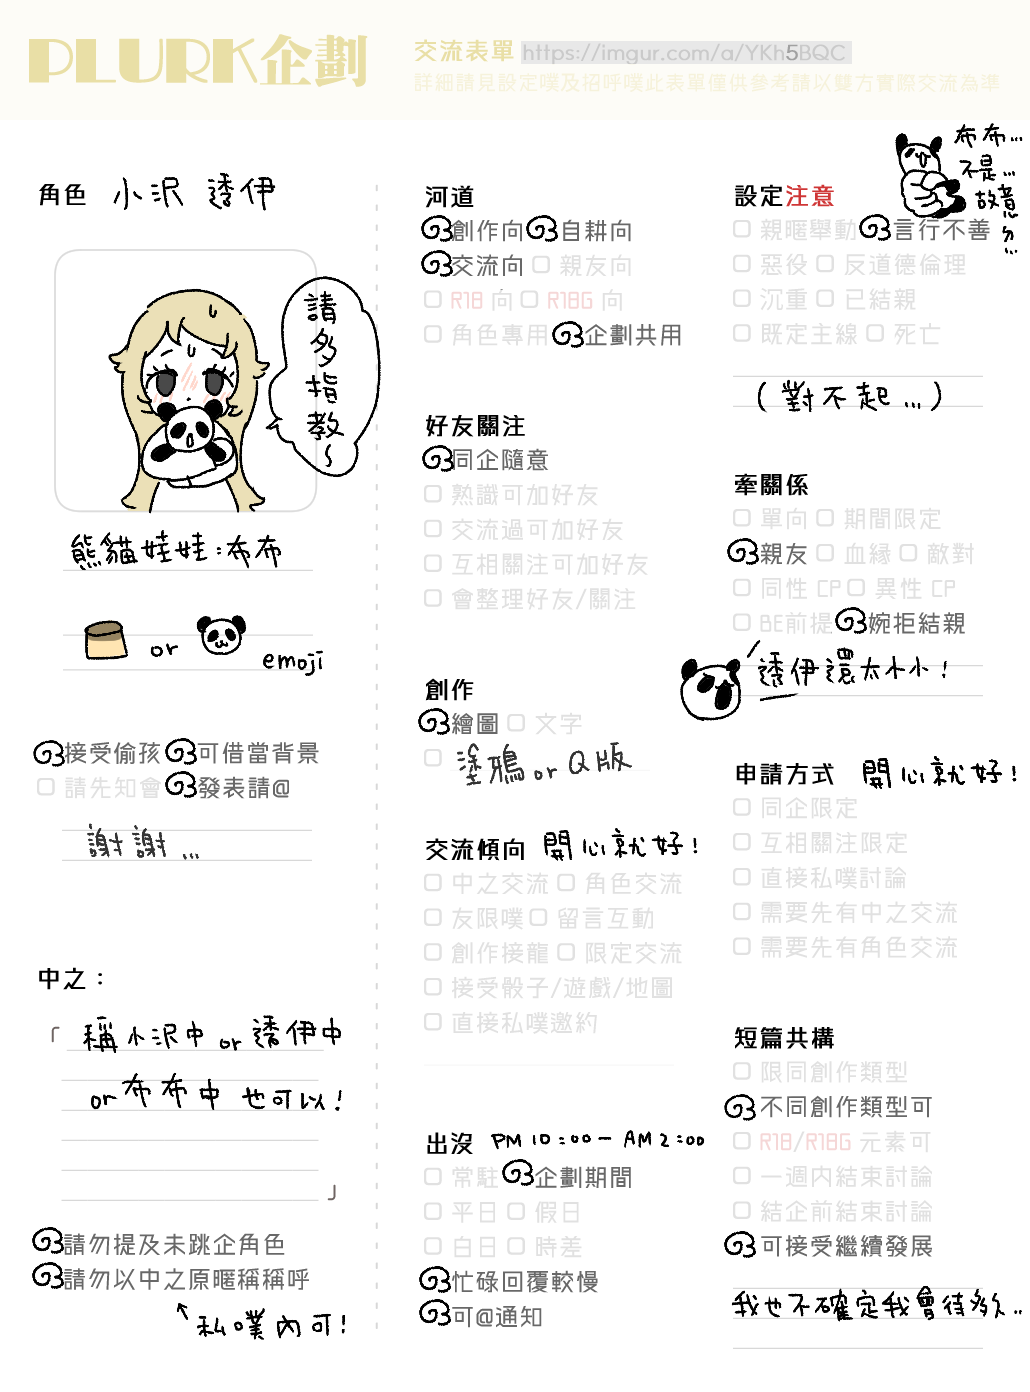 PLURK企劃
交流表單 https://imgur.com/a/YKh5BQC
詳細請見設定噗及招呼噗此表單僅供參考請以雙方實際交流為準
角色 小沢 透伊
請多指教～
熊貓娃娃：布布
or
emoji
接受偷孩 可借當背景
請先知會 發表請@
謝謝...
中之：
「 稱小沢中 or 透伊中
or 布布中 也可以！
」
請勿提及未跳企角色
請勿以中之原暱稱稱呼
↑私噗內可！
河道
創作向 自耕向
交流向 親友向
R18 向 R18G 向
角色專用 企劃共用
好友關注
同企隨意
熟識可加好友
交流過可加好友
互相關注可加好友
會整理好友/關注
創作
繪圖 文字
塗鴉 or Q版
交流傾向 開心就好！
中之交流 角色交流
友限噗 留言互動
創作接龍 限定交流
接受骰子/遊戲/地圖
直接私噗邀約
出沒 PM 10:00 － AM 2:00
常駐 企劃期間
平日 假日
白日 時差
忙碌回覆較慢
可@通知
布布...
不是...
故意
ㄉ...
設定注意
親暱舉動 言行不善
惡役 反道德倫理
沉重 已結親
既定主線 死亡
（對不起...）
牽關係
單向 期間限定
親友 血緣 敵對
同性 CP 異性 CP
BE前提 婉拒結親
透伊還太小小！
申請方式 開心就好！
同企限定
互相關注限定
直接私噗討論
需要先有中之交流
需要先有角色交流
短篇共構
限同創作類型
不同創作類型可
R18/R18G 元素可
一週內結束討論
結企前結束討論
可接受繼續發展
我也不確定我會待多久..